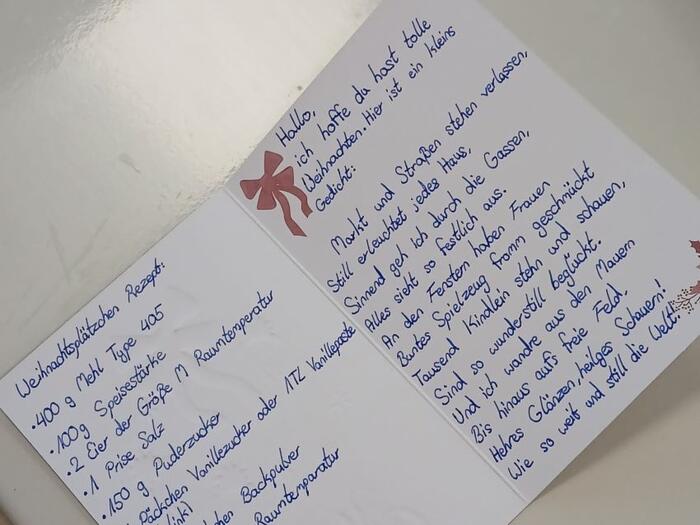 Weihnachtsplätzchen Rezept:
• 400 g Mehl Type 405
• 100g Speisestärke
• 2 Eier der Größe M Raumtemperatur
• 1 Prise Salz
• 150 g Puderzucker
Päckchen Vanillezucker oder 1TL Vanillepaste
Backpulver
Raumtemparatur
Hallo,
ich hoffe du hast tolle
Weihnachten. Hier ist ein kleins
Gedicht:
Markt und Straßen stehen verlassen,
Still erleuchtet jedes Haus,
Sinnend geh ich durch die Gassen,
Alles sieht so festlich aus.
An den Fenstern haben Frauen
Buntes Spielzeug fromm geschmückt
Tausend Kindlein stehn und schauen,
Sind so wunderstill beglückt.
Und ich wandre aus den Mauern
Bis hinaus aufs freie Feld,
Hehres Glänzen, heilges Schauern!
Wie so weit und still die Welt!